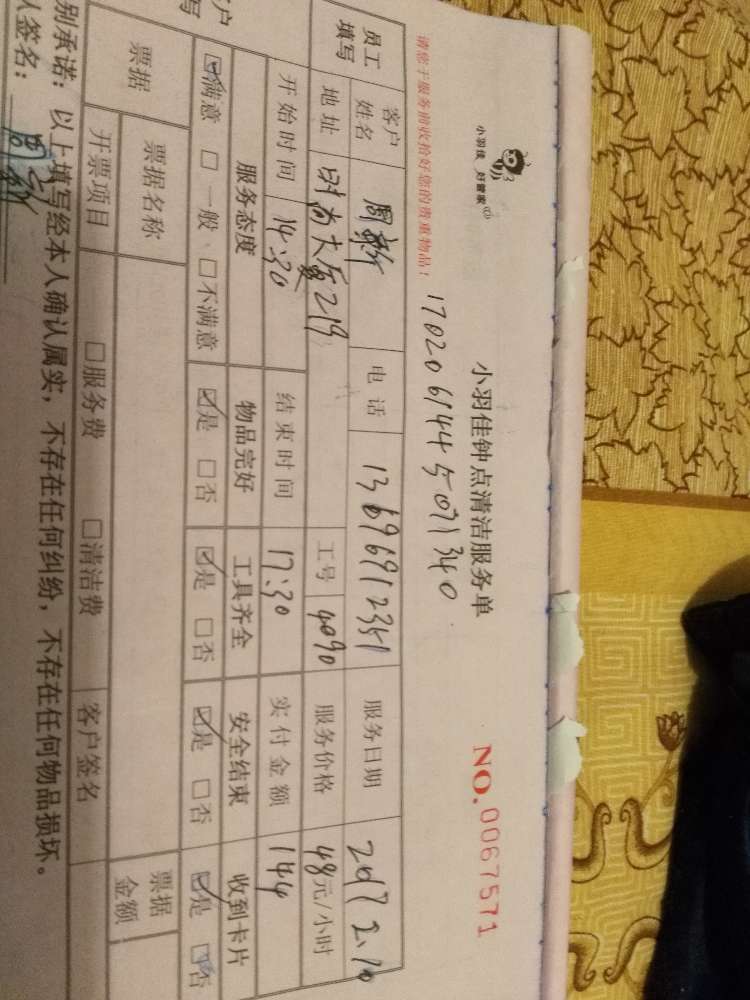 小羽佳 好管家
小羽佳钟点清洁服务单
NO.0067571
请您于服务前收拾好您的贵重物品!
员工填写
客户姓名 周新 电话 13696912351 服务日期 2017 2.10
地址 时尚大厦219 工号 4090 服务价格 48元/小时
开始时间 14:30 结束时间 17:30 实付金额 144
服务态度 物品完好 工具齐全 安全结束 收到卡片
☑满意 □一般 □不满意 ☑是 □否 ☑是 □否 ☑是 □否 ☑是 □否
票据 票据名称 □服务费 □清洁费 票据金额
开票项目 客户签名
别承诺:以上填写经本人确认属实,不存在任何纠纷,不存在任何物品损坏。
签名: